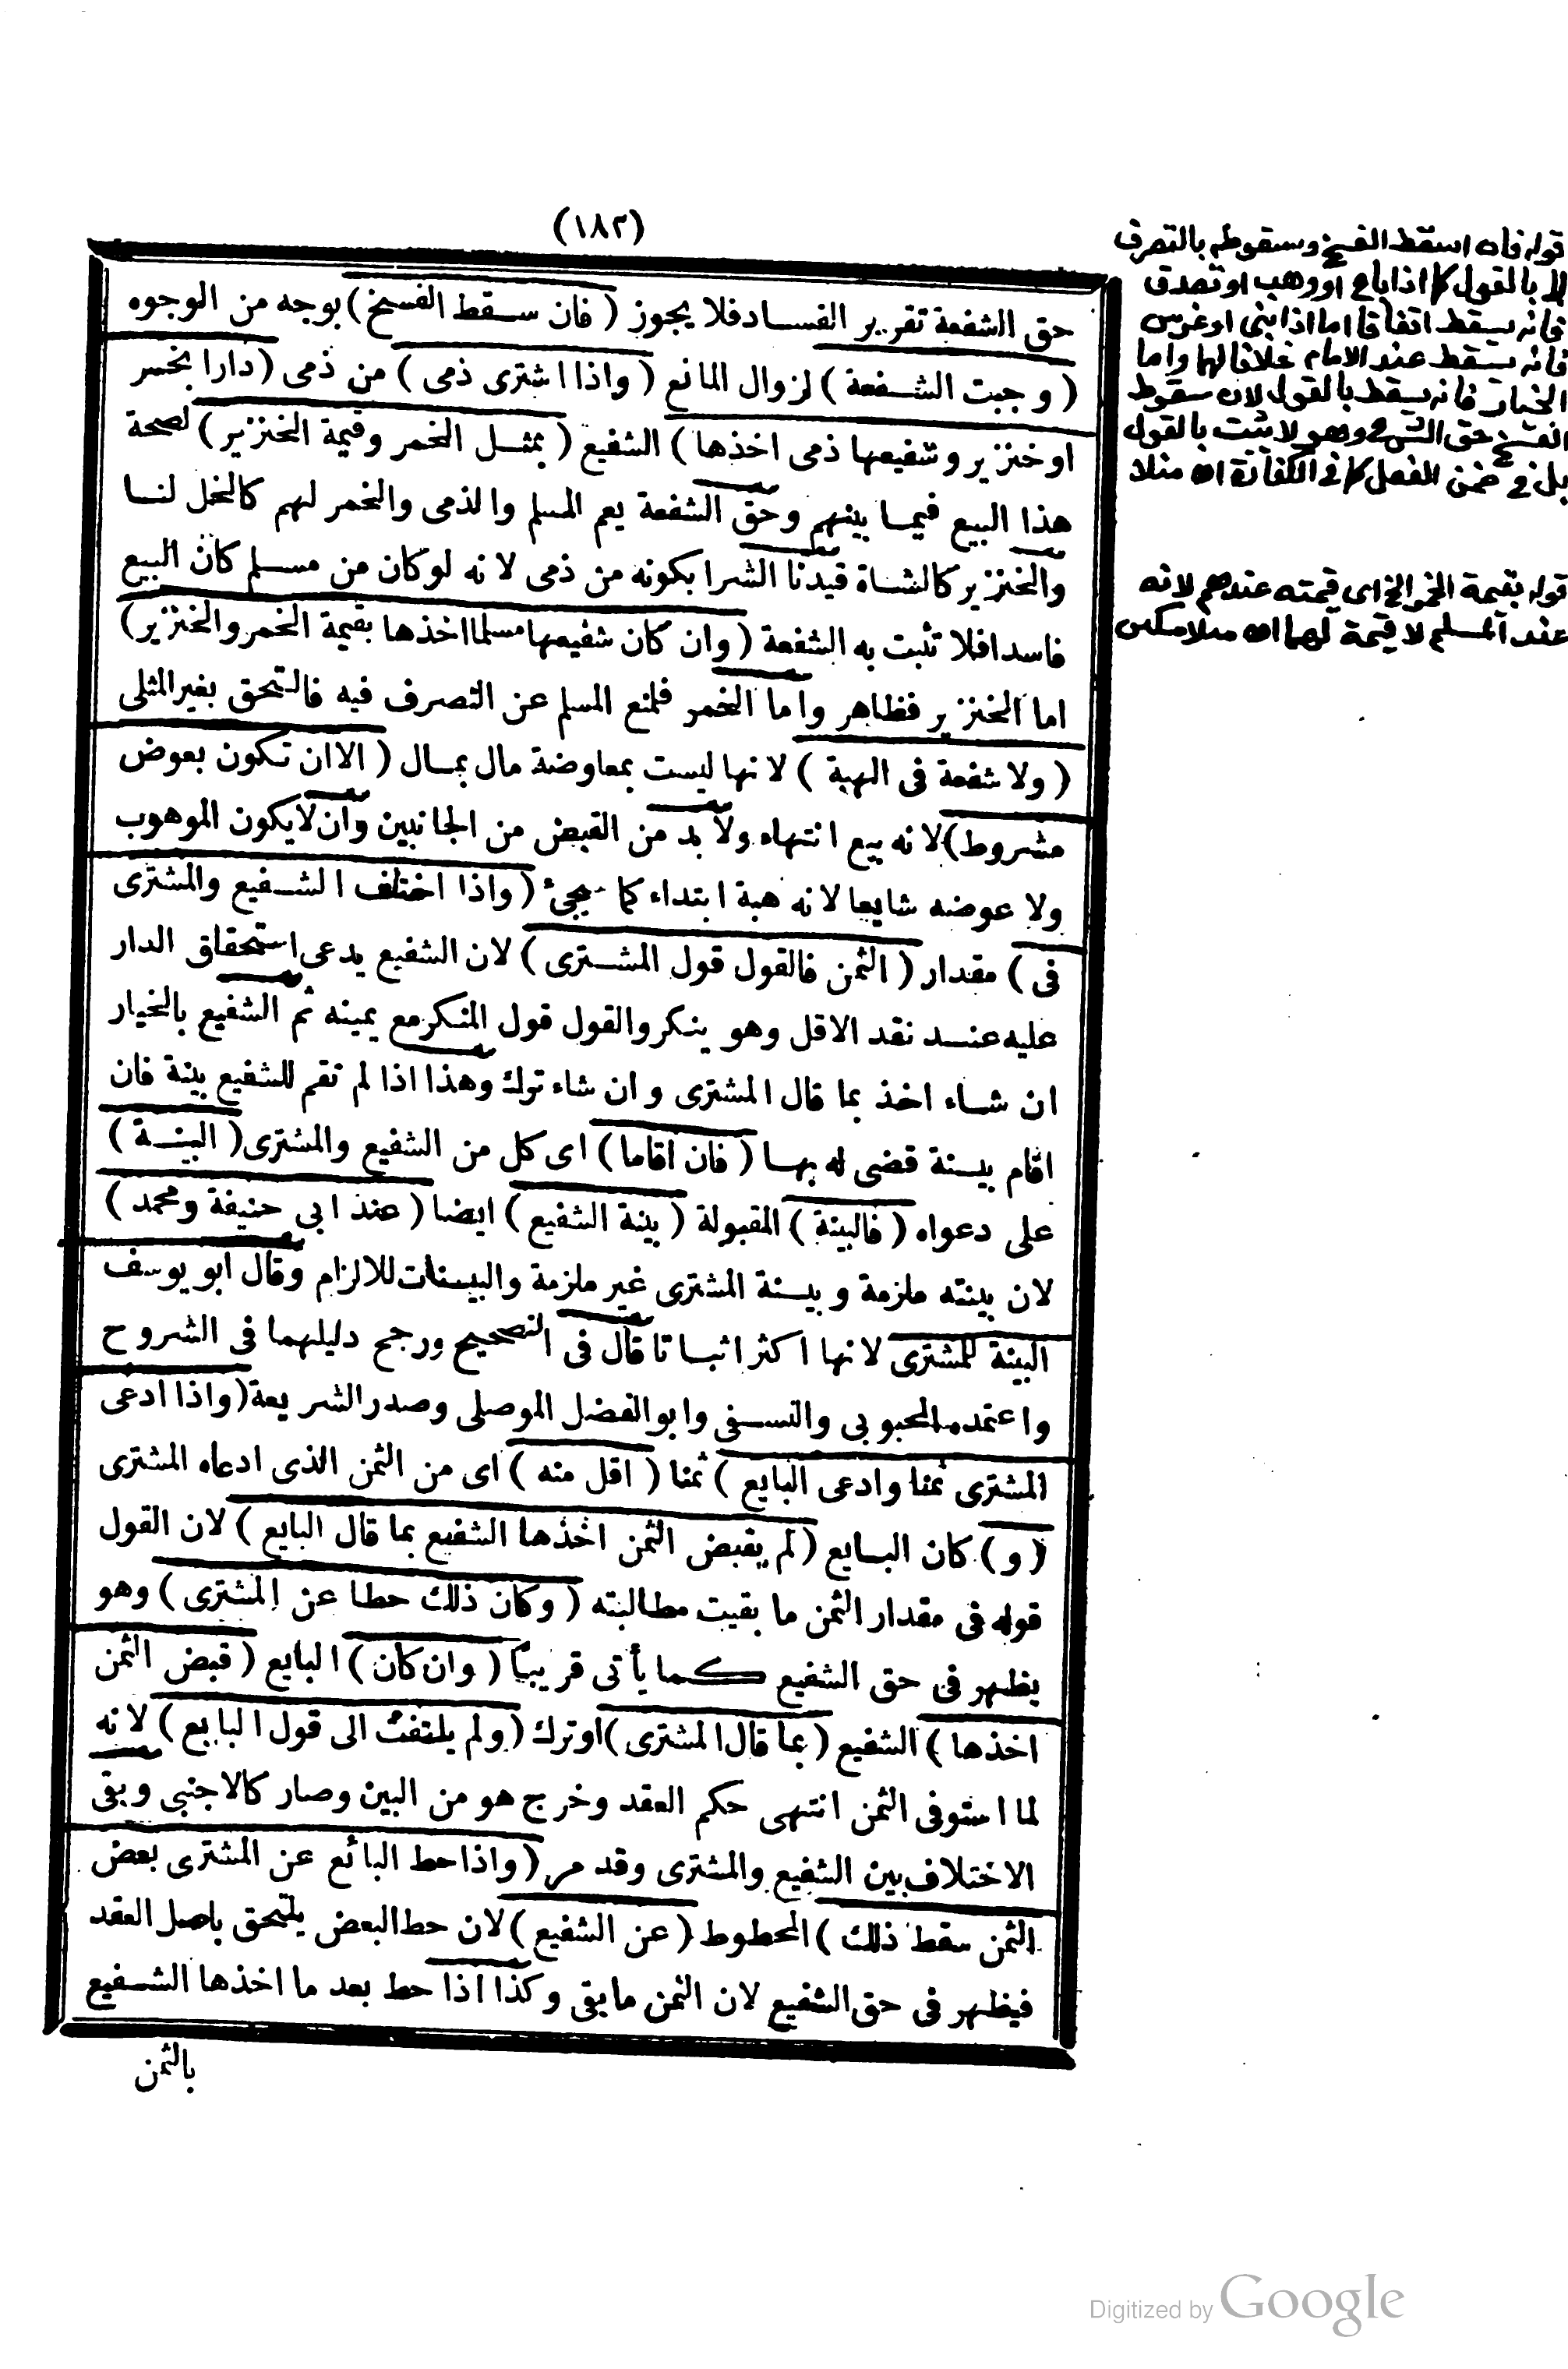 (١٨٢)
حق الشفعة تقرير الفساد فلا يجوز ( فان سقط الفسخ ) بوجه من الوجوه
( وجبت الشفعة ) لزوال المانع ( واذا اشترى ذمى ) من ذمى ( دارا بخمر
او خنزير وشفيعها ذمى اخذها ) الشفيع ( بمثل الخمر وقيمة الخنزير ) لصحة
هذا البيع فيما بينهم وحق الشفعة يعم المسلم والذمى والخمر لهم كالخل لنا
والخنزير كالشاة قيدنا الشرا بكونه من ذمى لانه لو كان من مسلم كان البيع
فاسدا فلا تثبت به الشفعة ( وان كان شفيعها مسلما اخذها بقيمة الخمر والخنزير )
اما الخنزير فظاهر واما الخمر فلمنع المسلم عن التصرف فيه فالتحق بغير المثلى
( ولا شفعة فى الهبة ) لانها ليست بمعاوضة مال بمال ( الا ان تكون بعوض
مشروط ) لانه بيع انتهاء ولا بد من القبض من الجانبين وان لا يكون الموهوب
ولا عوضه شايعا لانه هبة ابتداء كما يجىء ( واذا اختلف الشفيع والمشترى
فى ) مقدار ( الثمن فالقول قول المشترى ) لان الشفيع يدعى استحقاق الدار
عليه عند نقد الاقل وهو ينكر والقول قول المنكر مع يمينه ثم الشفيع بالخيار
ان شاء اخذ بما قال المشترى وان شاء ترك وهذا اذا لم تقم للشفيع بينة فان
اقام بينة قضى له بها ( فان اقاما ) اى كل من الشفيع والمشترى ( البينة )
على دعواه ( فالبينة ) المقبولة ( بينة الشفيع ) ايضا ( عند ابى حنيفة ومحمد )
لان بينته ملزمة وبينة المشترى غير ملزمة والبينات للالزام وقال ابو يوسف
البينة للمشترى لانها اكثر اثباتا قال فى التصحيح ورجح دليلهما فى الشروح
واعتمده المحبوبى والنسفى وابو الفضل الموصلى وصدر الشريعة ( واذا ادعى
المشترى ثمنا وادعى البايع ) ثمنا ( اقل منه ) اى من الثمن الذى ادعاه المشترى
( و ) كان البايع ( لم يقبض الثمن اخذها الشفيع بما قال البايع ) لان القول
قوله فى مقدار الثمن ما بقيت مطالبته ( وكان ذلك حطا عن المشترى ) وهو
يظهر فى حق الشفيع كما يأتى قريبا ( وان كان ) البايع ( قبض الثمن
اخذها ) الشفيع ( بما قال المشترى ) او ترك ( ولم يلتفت الى قول البايع ) لانه
لما استوفى الثمن انتهى حكم العقد وخرج هو من البين وصار كالاجنبى وبقى
الاختلاف بين الشفيع والمشترى وقد مر ( واذا حط البائع عن المشترى بعض
الثمن سقط ذلك ) المحطوط ( عن الشفيع ) لان حط البعض يلتحق باصل العقد
فيظهر فى حق الشفيع لان الثمن ما بقى وكذا اذا حط بعد ما اخذها الشفيع
بالثمن
قوله فان اسقط الفسخ وسقوطه بالتصرف
لا بالقول كما اذا باع او وهب او تصدق
فانه يسقط اتفاقا اما اذا بنى او غرس
فانه يسقط عند الامام خلافا لهما واما
الخيار فانه يسقط بالقول لان سقوط
الفسخ حق الشرع وهو لا يثبت بالقول
بل فى ضمن الفعل كما فى الكفاية اه منلا
قوله بقيمة الخمر الخ اى قيمته عندهم لانه
عند المسلم لا قيمة لهما اه منلا مسكين
Digitized by Google